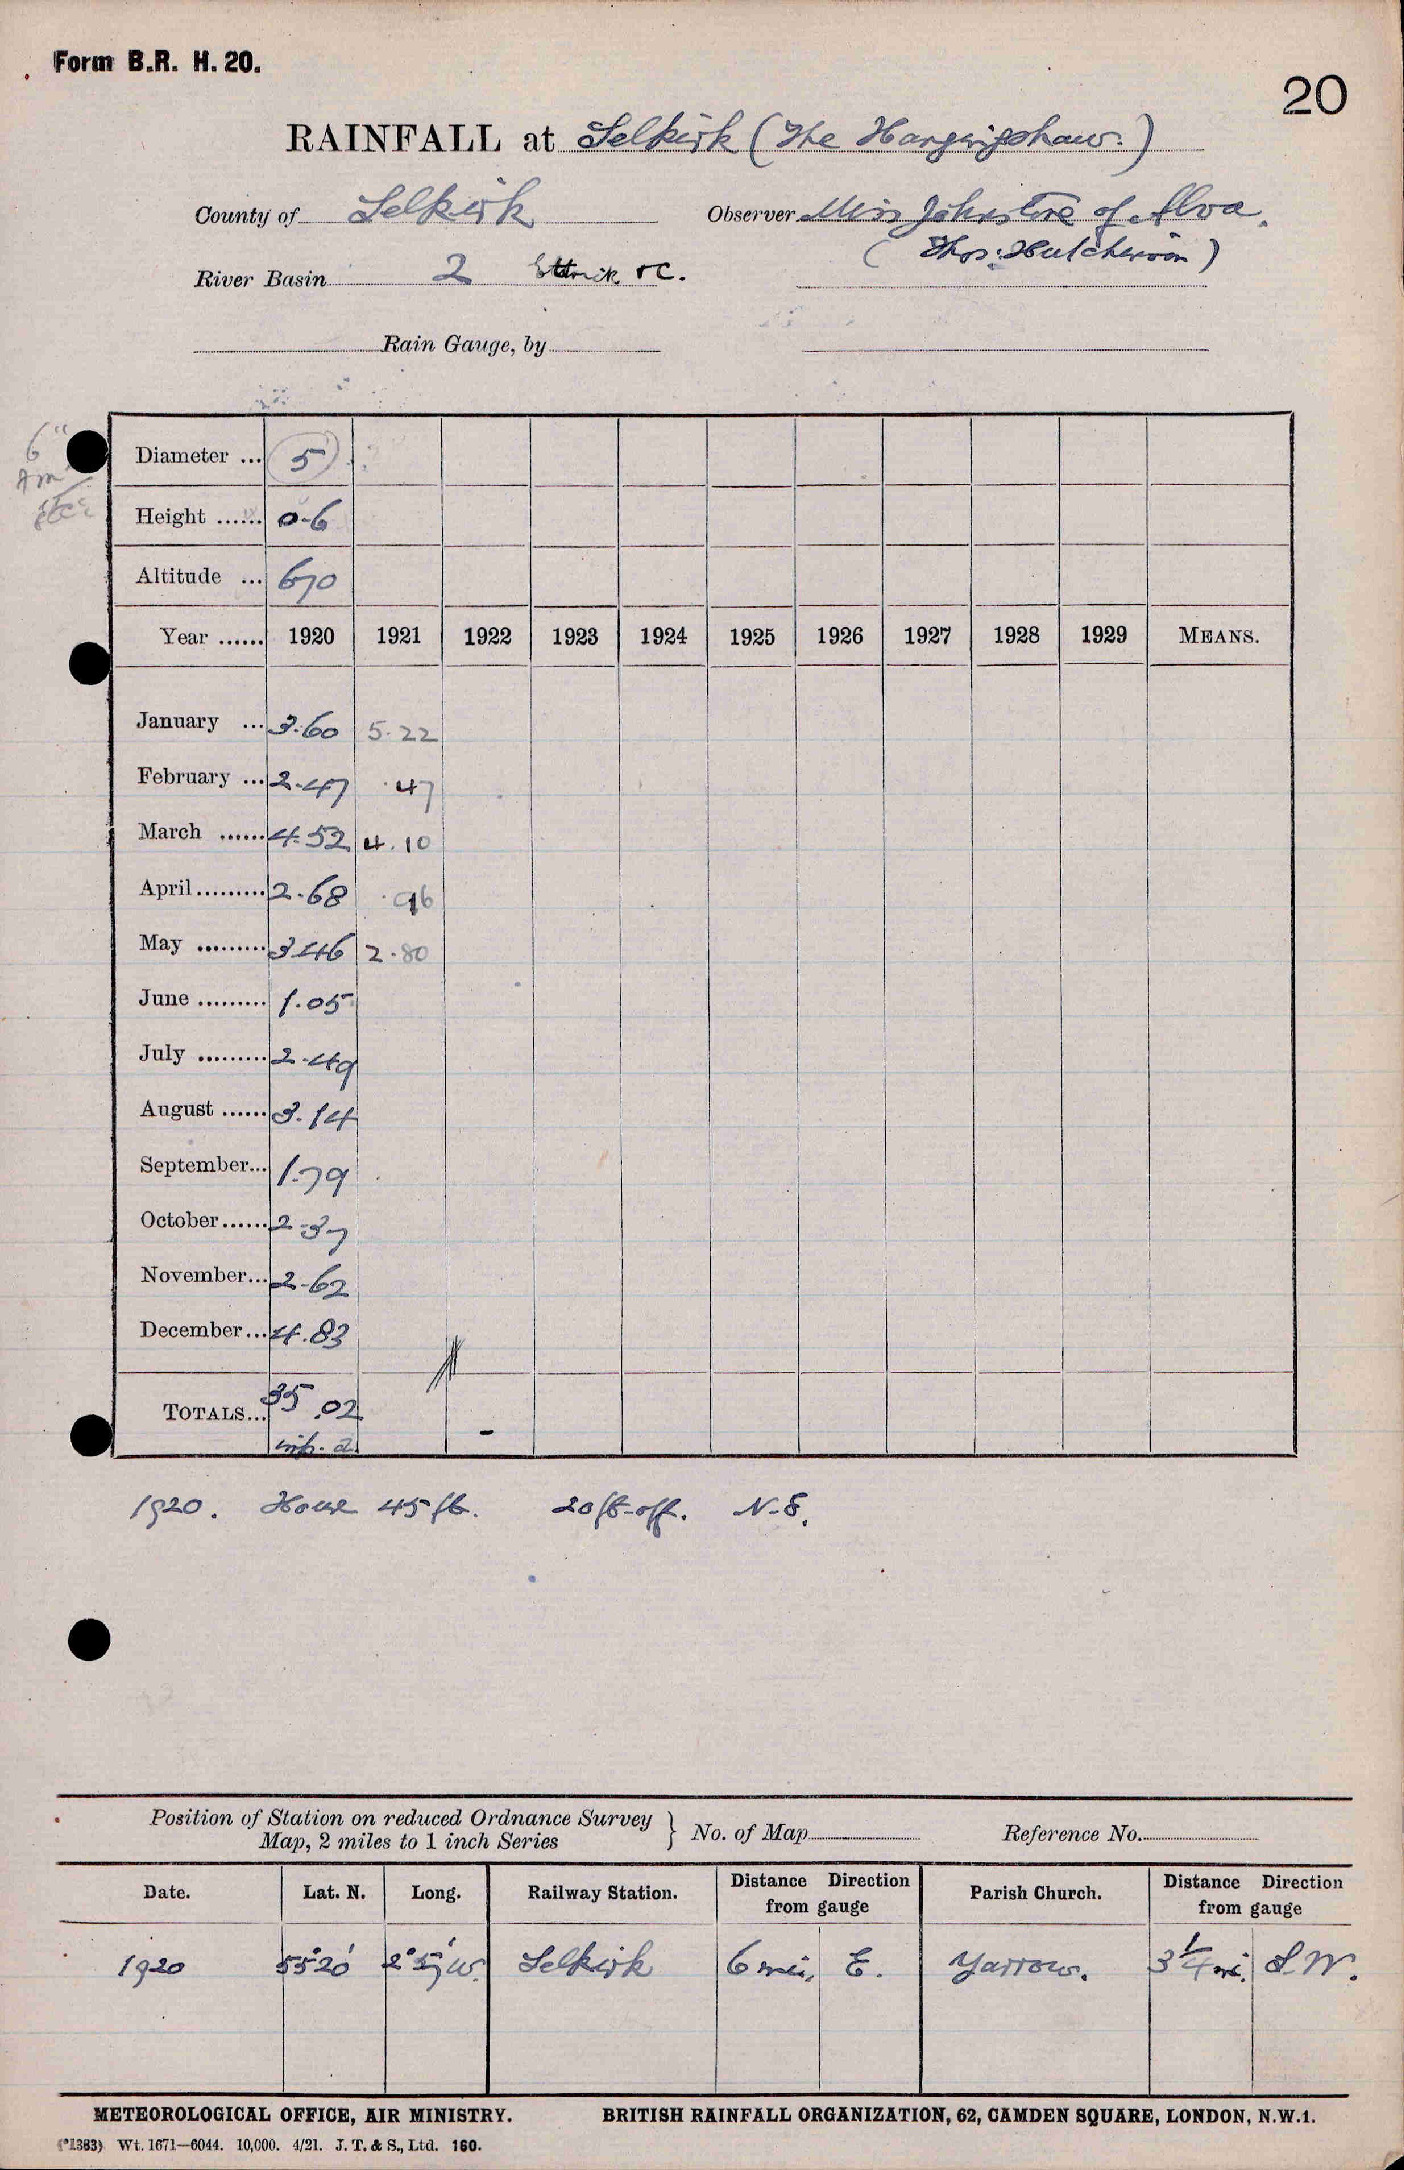 Form B.R. H. 20.
20
RAINFALL at Selkirk (The Hangingshaw.)
County of Selkirk Observer Miss Johnstone of Alva.
(Thos: Hutcheson)
River Basin 2 Ettrick &c.
Rain Gauge, by
6"
Diameter ... 5
Height ...... 0-6
Altitude ... 670
Year ...... 1920 1921 1922 1923 1924 1925 1926 1927 1928 1929 MEANS.
January ... 3.60 5.22
February ... 2.47 .47
March ...... 4.52 4.10
April ......... 2.68 .96
May ......... 3.46 2.80
June ......... 1.05
July ......... 2.49
August ...... 3.14
September... 1.79
October...... 2.37
November... 2.62
December... 4.83
TOTALS... 35.02 -
1920. House 45 ft. 20 ft-off. N-E.
Position of Station on reduced Ordnance Survey
Map, 2 miles to 1 inch Series } No. of Map Reference No.
Date. Lat. N. Long. Railway Station. Distance Direction from gauge Parish Church. Distance Direction from gauge
1920 55°20' 2°57'W. Selkirk 6 mi. E. Yarrow. 3 1/4 mi. S.W.
METEOROLOGICAL OFFICE, AIR MINISTRY. BRITISH RAINFALL ORGANIZATION, 62, CAMDEN SQUARE, LONDON, N.W.1.
(*1383) Wt. 1671—6044. 10,000. 4/21. J. T. & S., Ltd. 160.